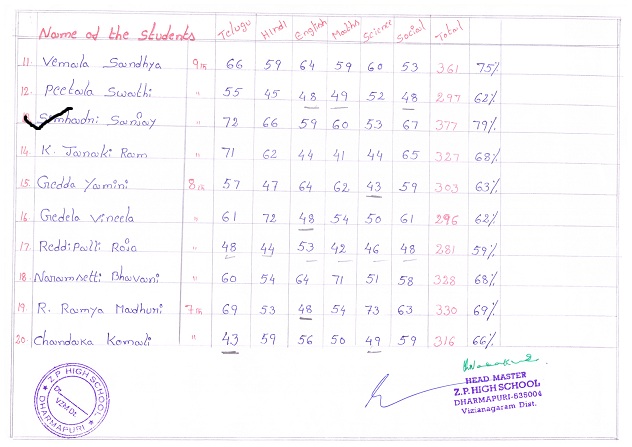 Name of the Students Telugu Hindi English Maths Science Social Total
11. Vemala Sandhya 9th 66 59 64 59 60 53 361 75%
12. Peetala Swathi " 55 45 48 49 52 48 297 62%
13 Simhadri Sanjay " 72 66 59 60 53 67 377 79%
14. K. Janaki Ram " 71 62 44 41 44 65 327 68%
15. Gedda Yamini 8th 57 47 64 62 43 59 303 63%
16. Gedela Vineela " 61 72 48 54 50 61 296 62%
17. Reddipalli Roja " 48 44 53 42 46 48 281 59%
18. Naramsetti Bhavani " 60 54 64 71 51 58 328 68%
19. R. Ramya Madhuri 7th 69 53 48 54 73 63 330 69%
20. Chandaka Kamali " 43 59 56 50 49 59 316 66%
Z.P. HIGH SCHOOL
Dt.
VZM Dt.
DHARMAPURI
HEAD MASTER
Z.P. HIGH SCHOOL
DHARMAPURI-535004
Vizianagaram Dist.